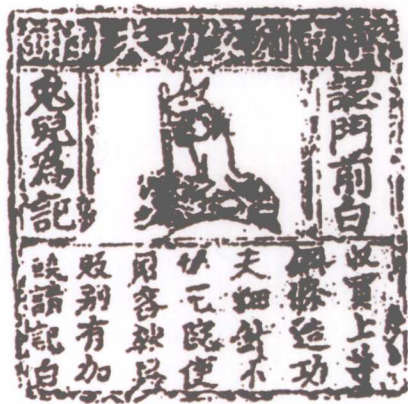 濟南劉家功夫針鋪
認門前白
兔兒爲記
收買上等
鋼條造功
夫細針不
使
客
販別有加
饒請記白